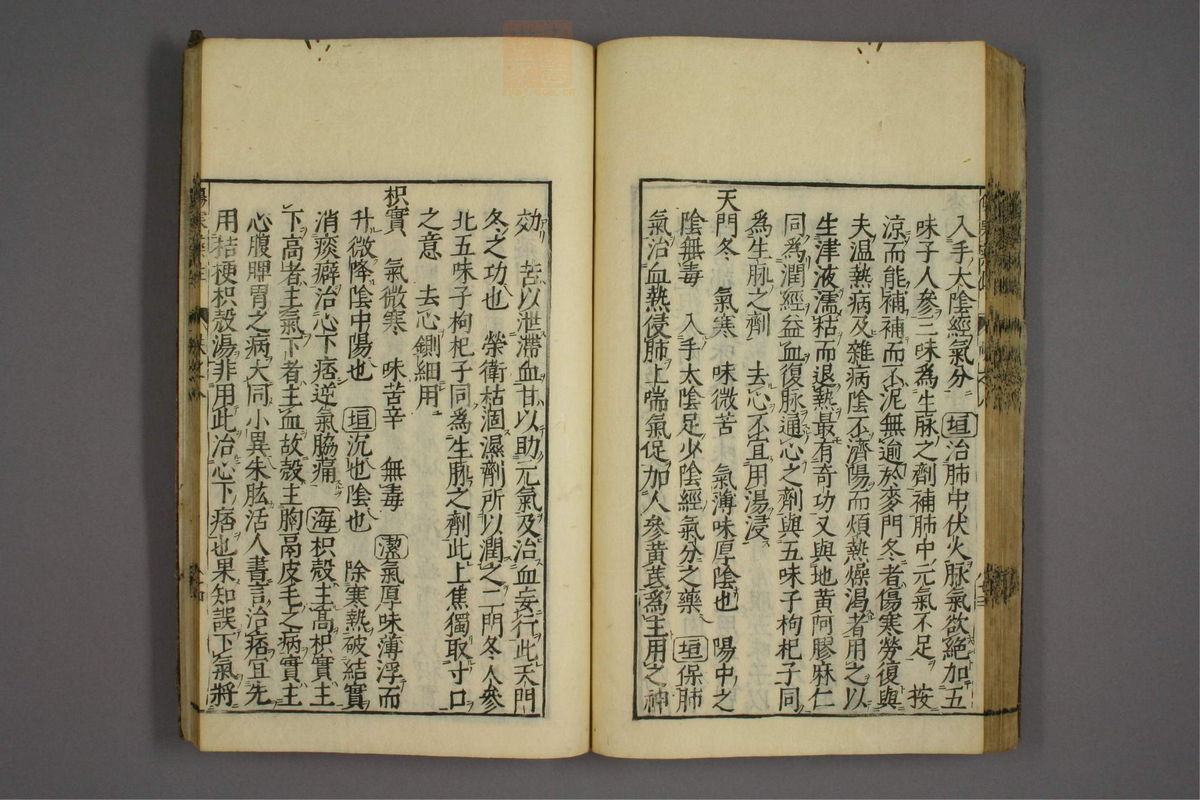 入手太陰經氣分 垣治肺中伏火脉氣欲絶加五
味子人參三味為生脉之劑補肺中元氣不足 按
涼而能補補而不泥無逾於麥門冬者傷寒勞復與
夫温熱病及雜病陰不濟陽而煩熱燥渇者用之以
生津液濡枯而退熱最有奇功又與地黄阿膠麻仁
同為潤經益血復脉通心之劑與五味子枸杞子同
為生脉之劑 去心不宜用湯浸
天門冬 氣寒 味微苦 氣薄味厚陰也 陽中之
陰無毒 入手太陰足少陰經氣分之藥 垣保肺
氣治血熱侵肺上喘氣促加人參黄芪為主用之神
効 苦以泄滯血甘以助元氣及治血妄行此天門
冬之功也 榮衛枯涸濕劑所以潤之二門冬人參
北五味子枸杞子同為生脉之劑此上焦獨取寸口
之意 去心鍘細用
枳實 氣微寒 味苦辛 無毒 潔氣厚味薄浮而
升微降陰中陽也 垣沉也陰也 除寒熱破結實
消痰癖治心下痞逆氣脇痛 海枳殻主髙枳實主
下高者主氣下者主血故殻主胸鬲皮毛之病實主
心腹脾胃之病大同小異朱肱活人書言治痞宜先
用桔梗枳殻湯非用此治心下痞也果知誤下氣將